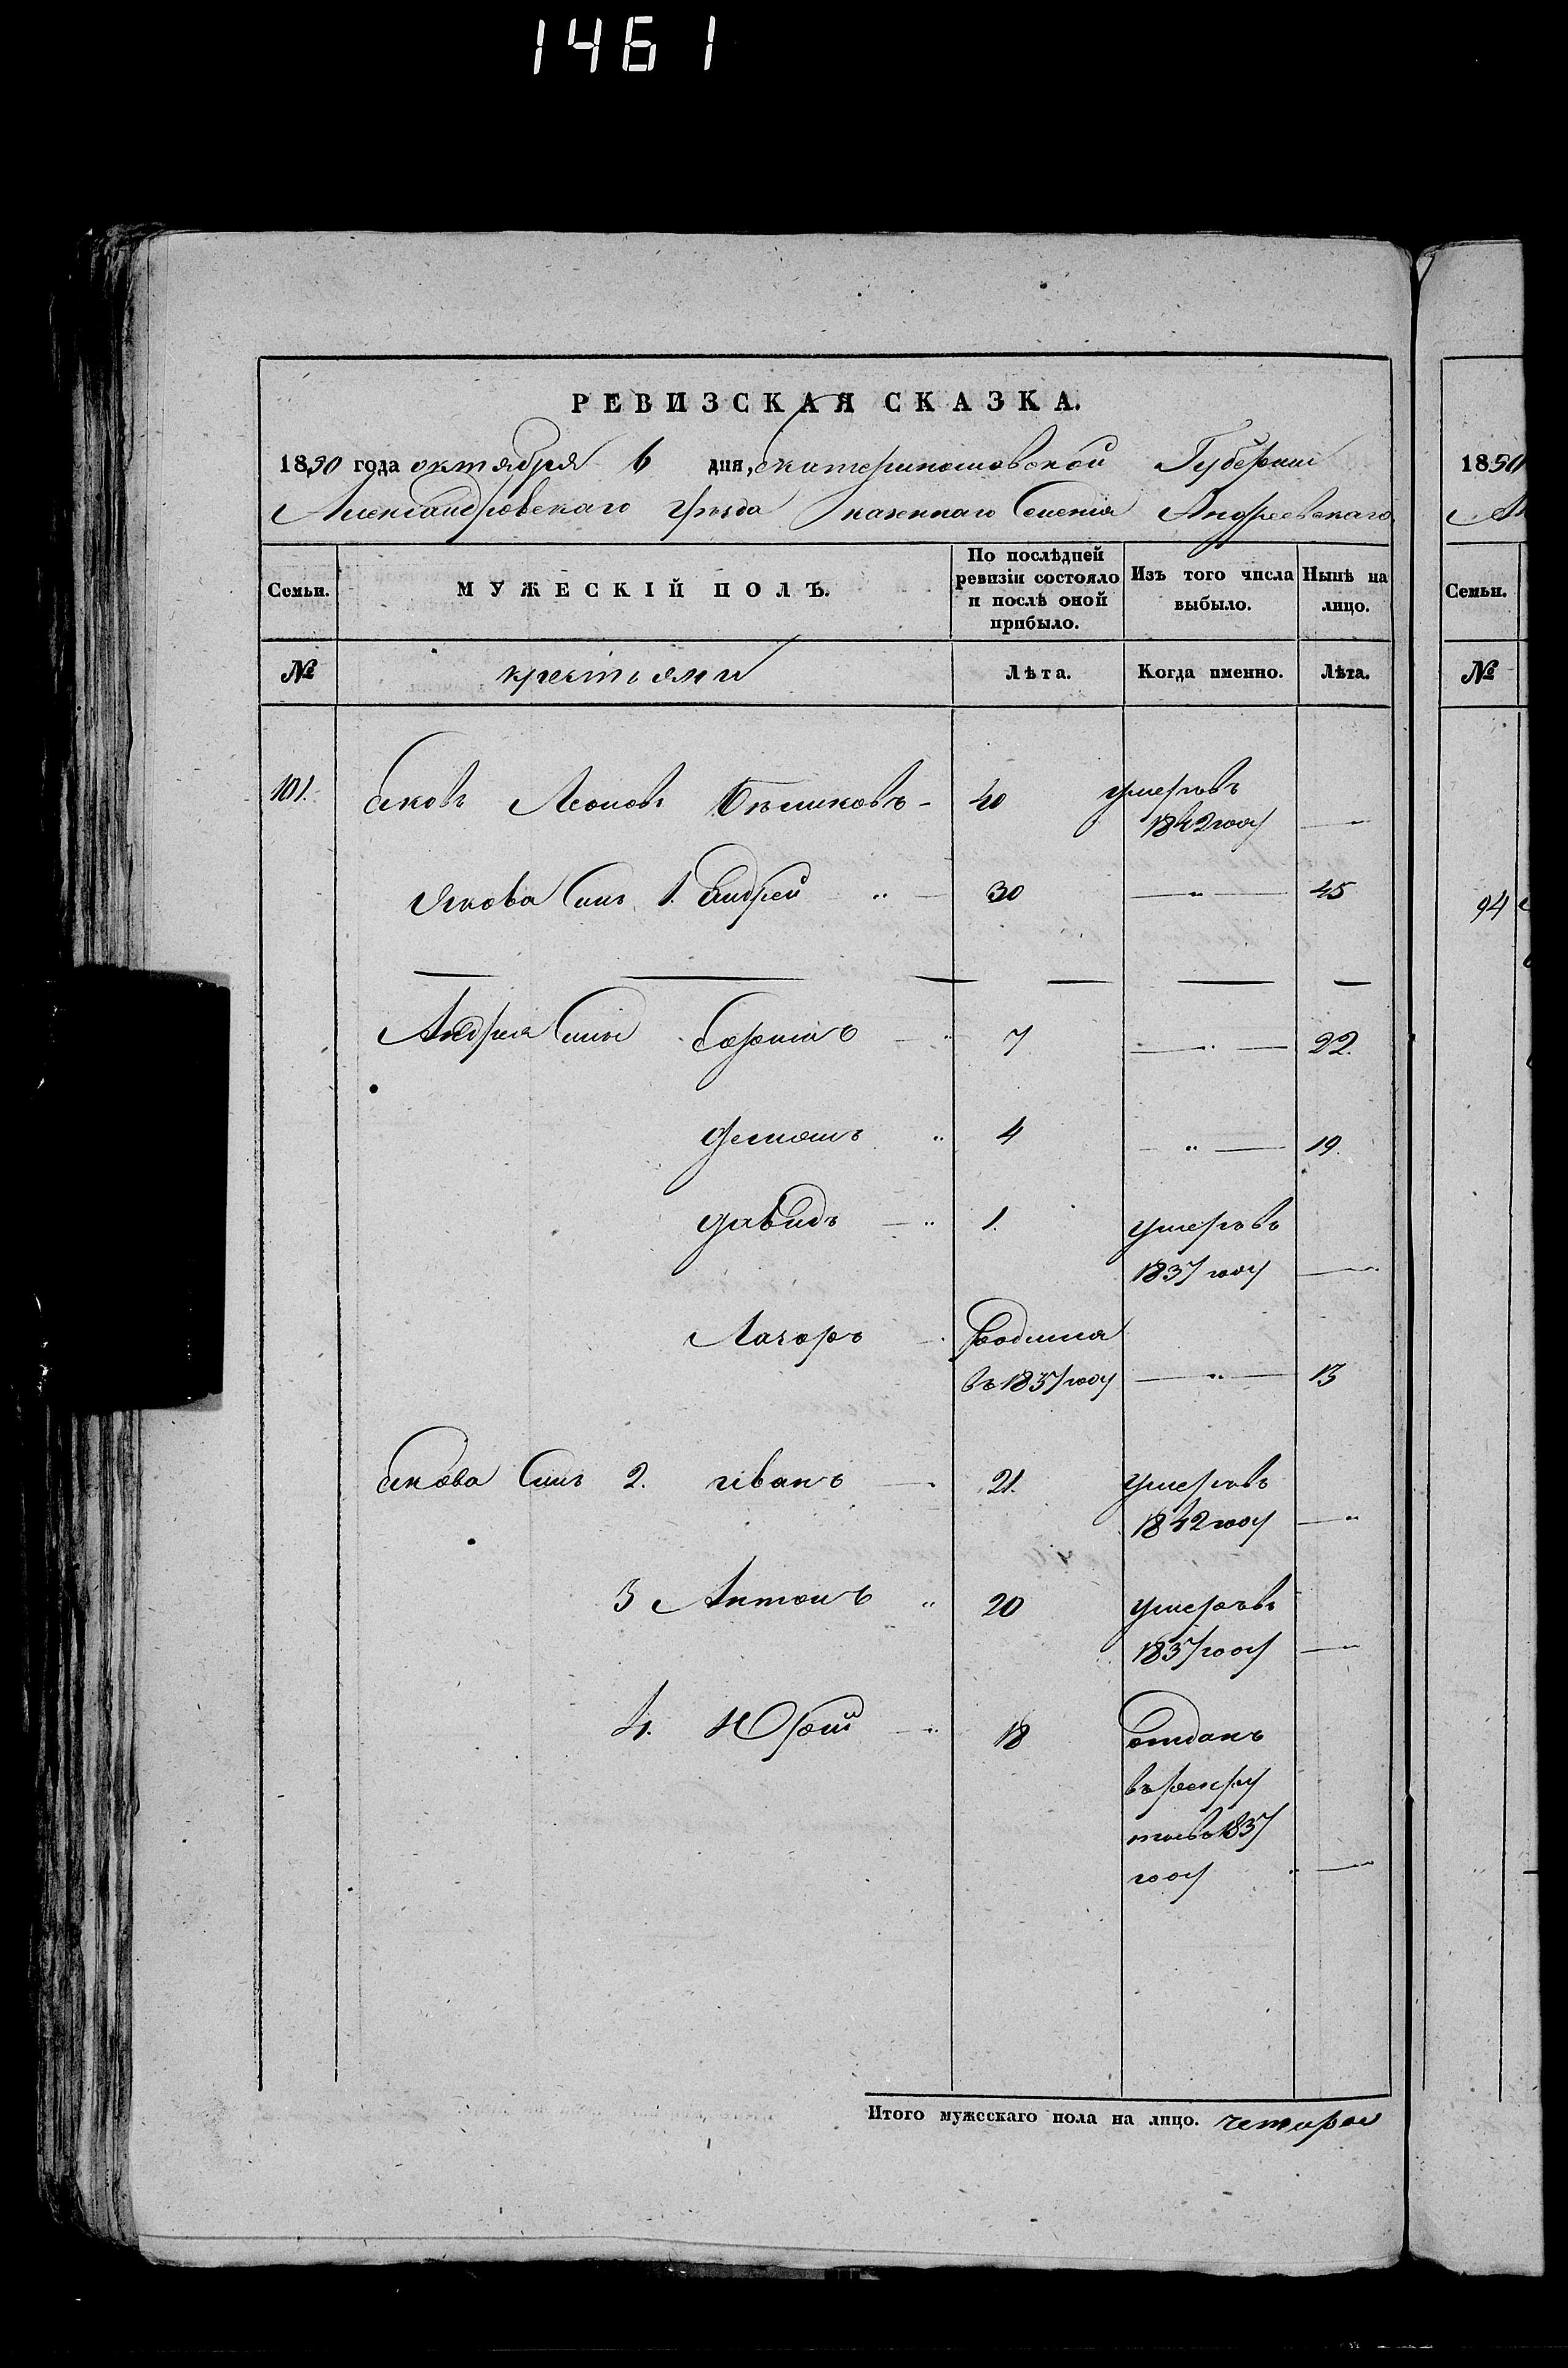 1461
РЕВИЗСКАЯ СКАЗКА.
1850 года октября 6 дня, Екатеринославской Губернии
Александровского уезда казенного Селения Андреевского
Семьи.
МУЖЕСКІЙ ПОЛЪ.
По послѣдней ревизіи состояло и послѣ оной прибыло.
Изъ того числа выбыло.
Нынѣ на лицо.
№
крестьяни
Лѣта.
Когда именно.
Лѣта.
101. Яковъ Леоновъ Бѣликовъ 40 умеръ въ
1842 году —
Якова Сынъ 1. Андрей " — 30 — " — 45
Андрея Сыны 7 — " — 22.
" 4 — " — 19.
Давидъ — " 1. умеръ въ
1837 году —
Лазоръ родился
въ 1837 году — " — 13
Якова Сынъ 2. иванъ 21. умеръ въ
1842 году — "
3 Антонъ " 20 умеръ въ
1837 году —
4. Юрой — " 18 отданъ
въ рекру
ты въ 1837
году —
Итого мужескаго пола на лицо. четыре
1850
Семьи.
№
94